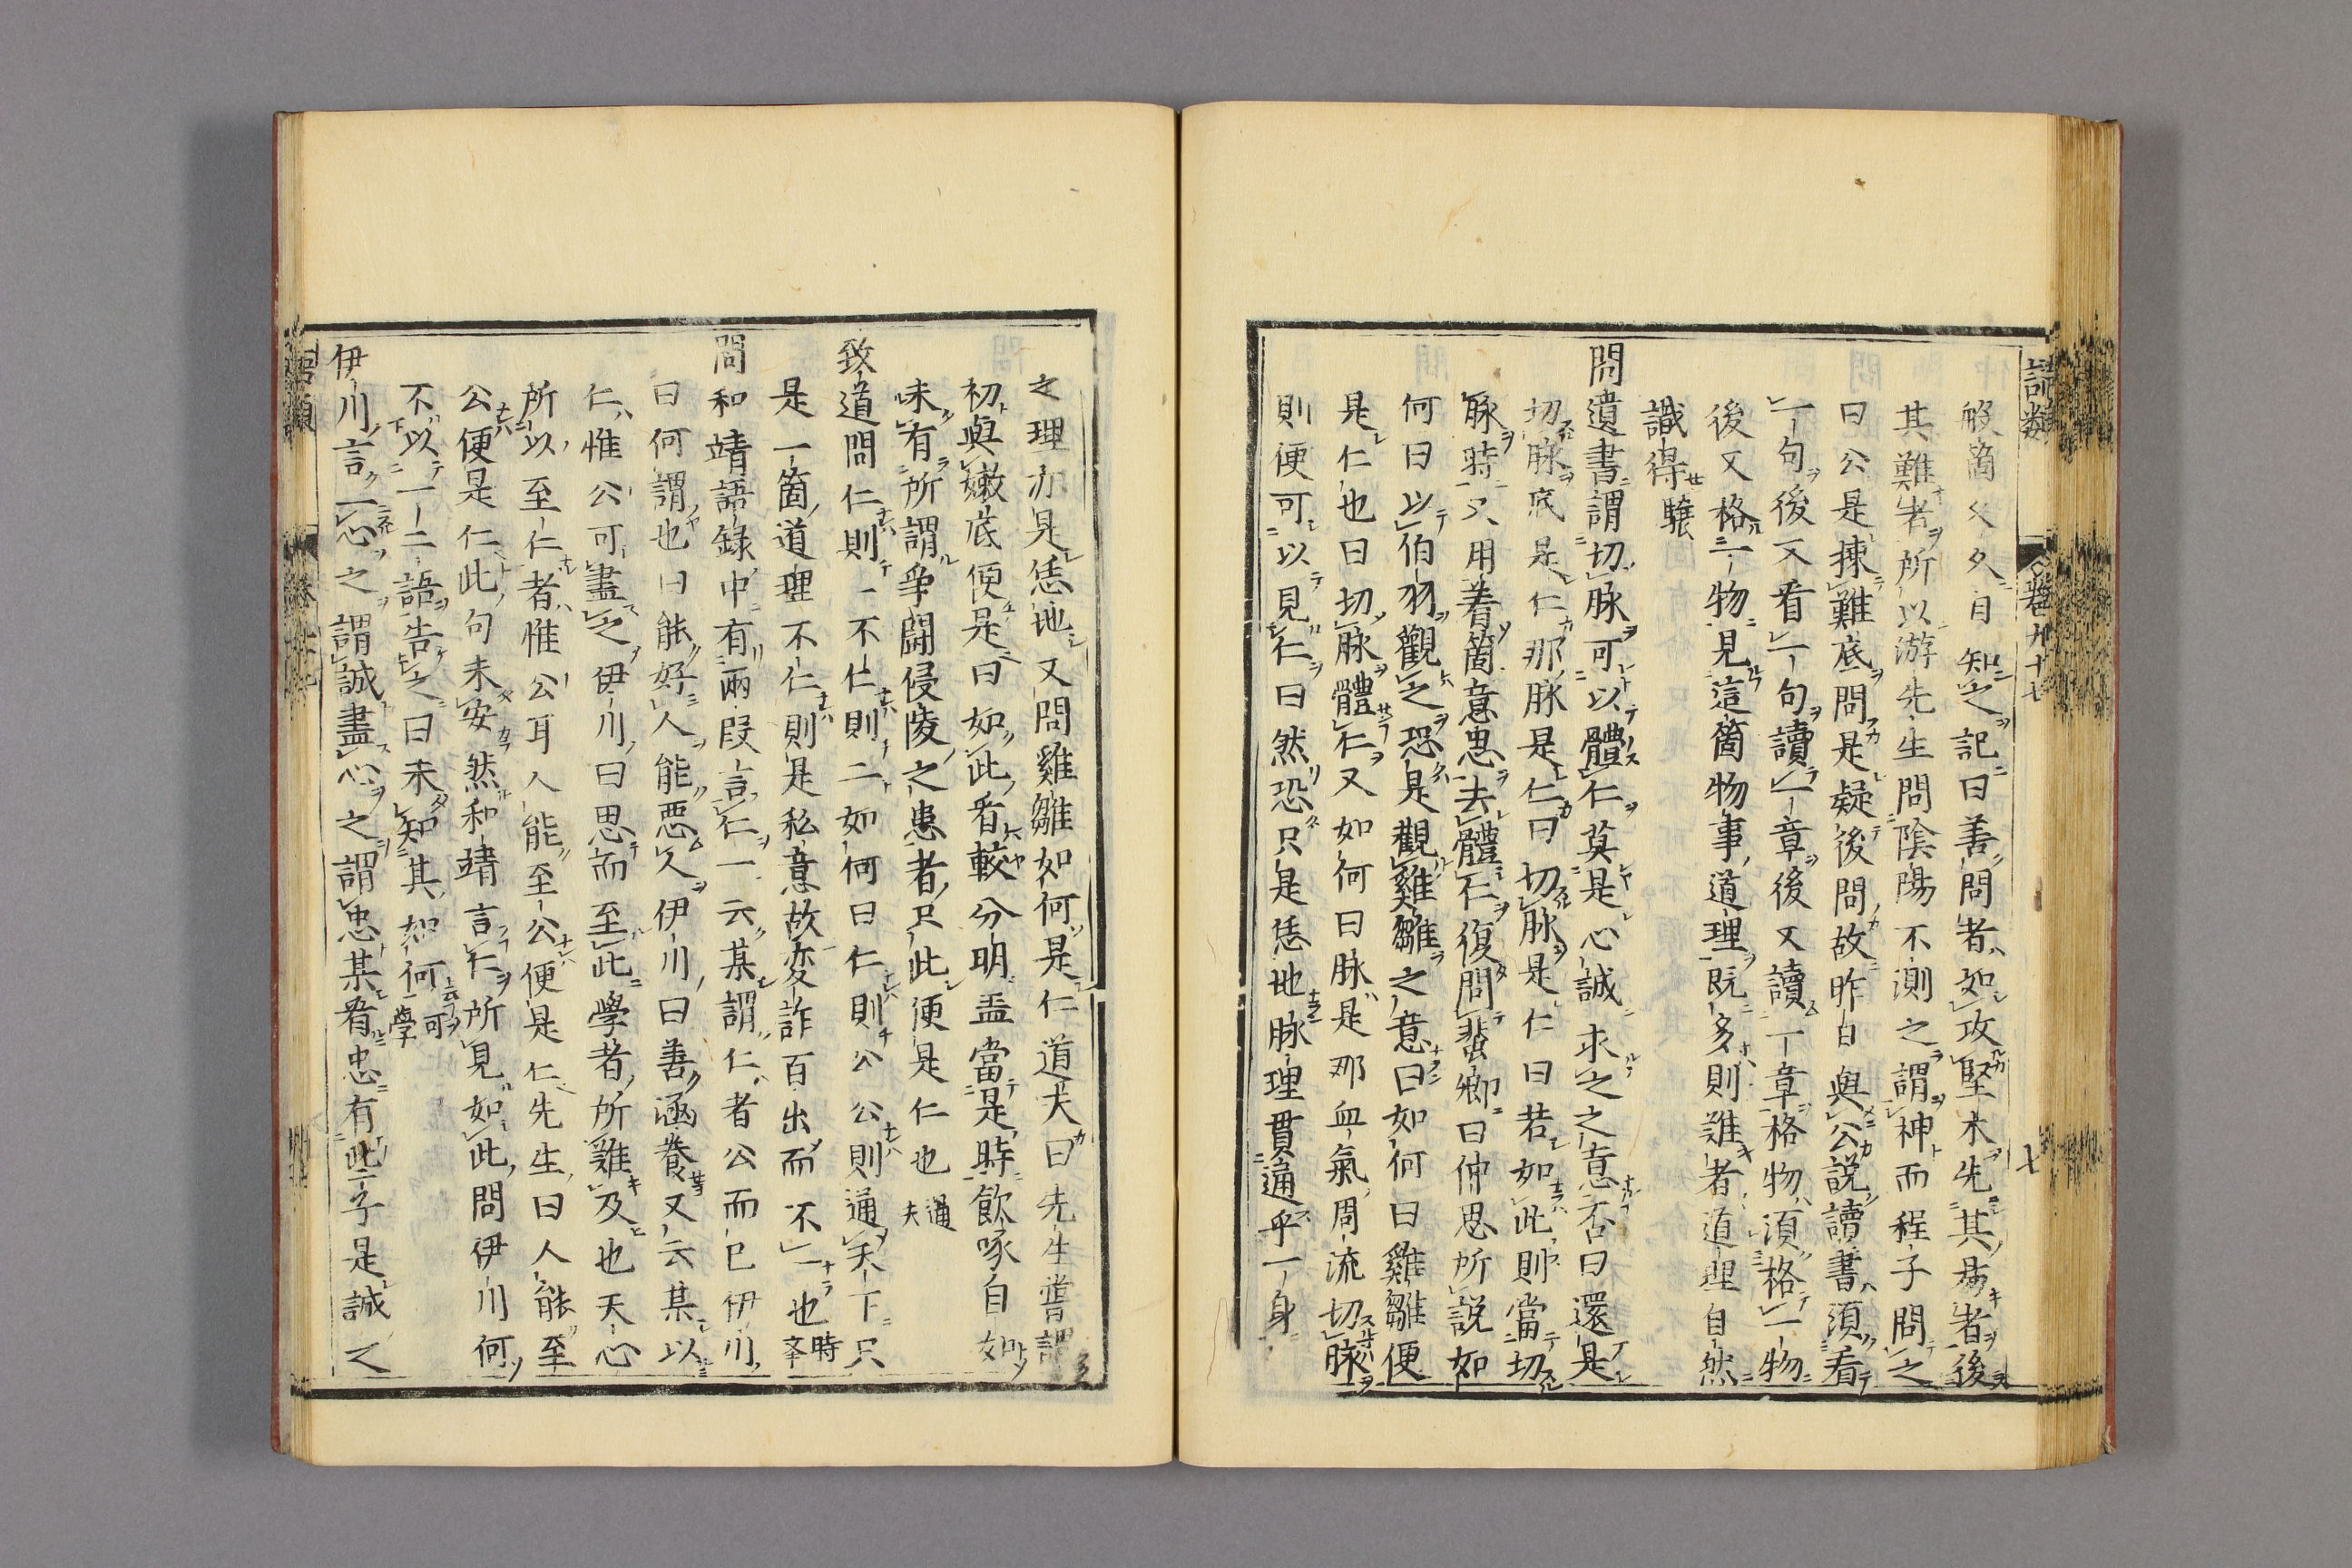 語類 卷九十七 七
般箇久久自知之記曰善問者如攻堅木先其易者後
其難者所以游先生問陰陽不測之謂神而程子問之
曰公是揀難底問是疑後問故昨日與公說讀書須看
一句後又看一句讀一章後又讀一章格物須格一物
後又格一物見這箇物事道理既多則難者道理自然
識得驤
問遺書謂切脉可以體仁莫是心誠求之之意否曰還是
切脉底是仁那脉是仁曰切脉是仁曰若如此則當切
脉時又用着箇意思去體仁復問蜚卿曰仲思所說如
何曰以伯羽觀之恐是觀雞雛之意曰如何曰雞雛便
是仁也曰切脉體仁又如何曰脉是那血氣周流切脉
則便可以見仁曰然恐只是恁地脉理貫通乎一身
之理亦是恁地又問雞雛如何是仁道夫曰先生嘗謂
初與嫩底便是曰如此看較分明盖當是時飲啄自如
未有所謂爭鬭侵陵之患者只此便是仁也 道夫
致道問仁則一不仁則二如何曰仁則公公則通天下只
是一箇道理不仁則是私意故変詐百出而不一也 時舉
問和靖語錄中有兩段言仁一云某謂仁者公而已伊川
曰何謂也曰能好人能悪人伊川曰善涵養又云某以
仁惟公可盡之伊川曰思而至此學者所難及也天心
所以至仁者惟公耳人能至公便是仁先生曰人能至
公便是仁此句未安然和靖言仁所見如此問伊川何
不以一二語告之曰未知其如何 可學
伊川言一心之謂誠盡心之謂忠某看忠有些子是誠之